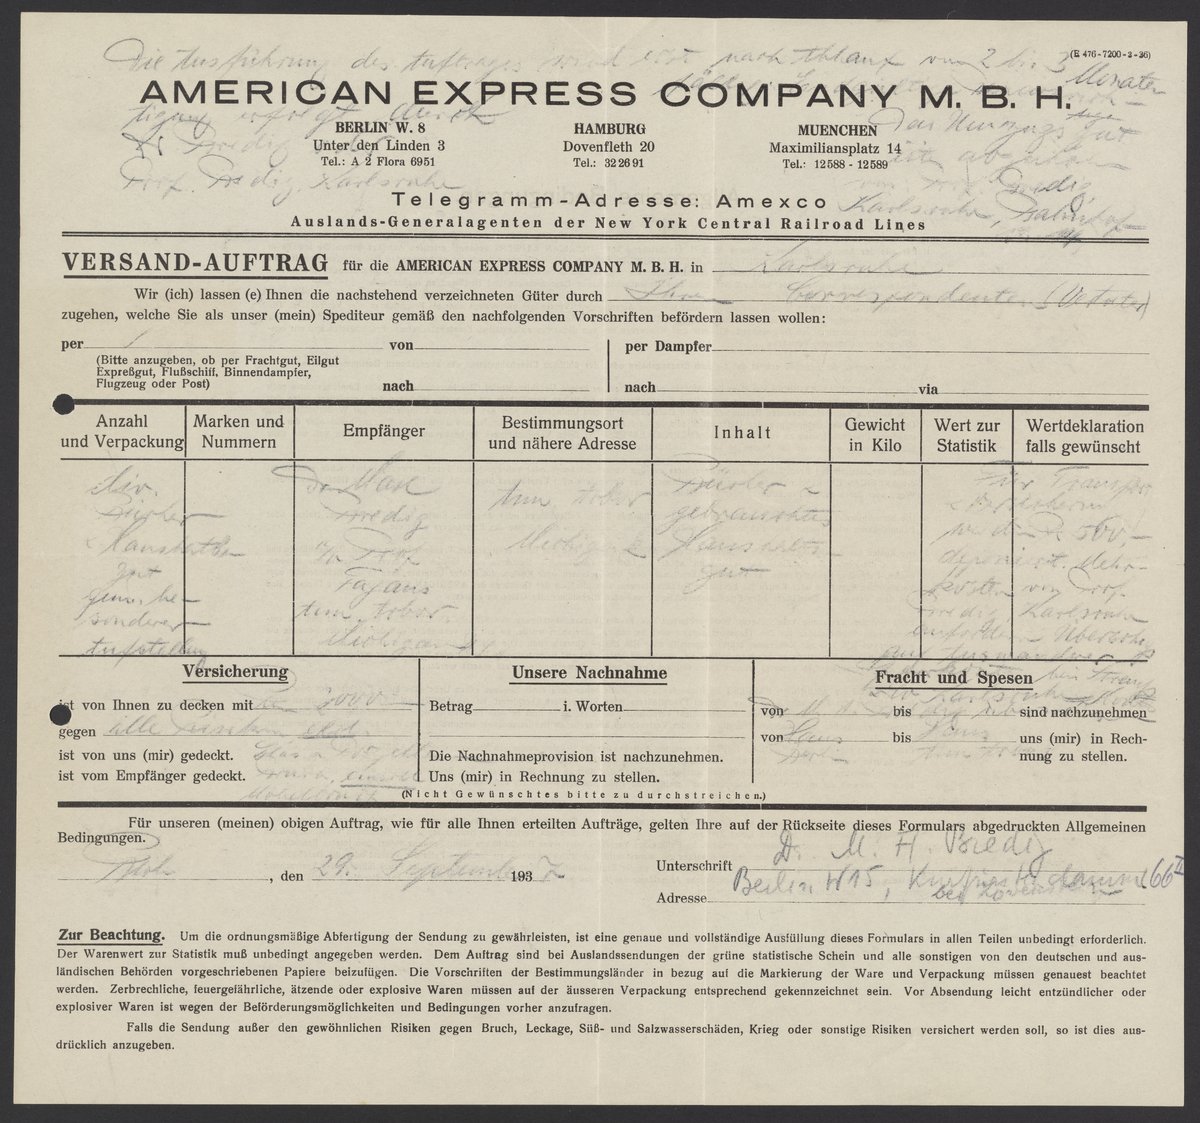 (E 476-7200-3-36)
Die Ausführung des Auftrages wird erst nach Ablauf von 2 bis 3 Monaten
AMERICAN EXPRESS COMPANY M. B. H.
BERLIN W. 8
Unter den Linden 3
Tel.: A 2 Flora 6951
HAMBURG
Dovenfleth 20
Tel.: 32 26 91
MUENCHEN
Maximiliansplatz 14
Tel.: 12588 - 12589
Das Umzugsgut
ist abzuholen
von Prof. Bredig
Karlsruhe, Bahnhof
Dr Bredig
Prof. Bredig, Karlsruhe
Telegramm-Adresse: Amexco
Auslands-Generalagenten der New York Central Railroad Lines
VERSAND-AUFTRAG für die AMERICAN EXPRESS COMPANY M. B. H. in Karlsruhe
Wir (ich) lassen (e) Ihnen die nachstehend verzeichneten Güter durch Ihren Correspondenten
zugehen, welche Sie als unser (mein) Spediteur gemäß den nachfolgenden Vorschriften befördern lassen wollen:
per von
(Bitte anzugeben, ob per Frachtgut, Eilgut
Expreßgut, Flußschiff, Binnendampfer,
Flugzeug oder Post)
nach
per Dampfer
nach via
Anzahl
und Verpackung
Marken und
Nummern
Empfänger
Bestimmungsort
und nähere Adresse
Inhalt
Gewicht
in Kilo
Wert zur
Statistik
Wertdeklaration
falls gewünscht
div.
Bücher
Haushalts
gut
gem. be-
sonderer
Aufstellung
Dr Max
Bredig
c/o Prof.
Fajans
Ann Arbor
Michigan
Ann Arbor
Michigan
Bücher u
gebrauchtes
Haushalts
gut
Für Transport
500,-
deponiert. Mehr-
kosten von Prof.
Bredig Karlsruhe
anfordern
Versicherung
ist von Ihnen zu decken mit 3000
gegen alle Risiken
ist von uns (mir) gedeckt.
ist vom Empfänger gedeckt.
Unsere Nachnahme
Betrag i. Worten
Die Nachnahmeprovision ist nachzunehmen.
Uns (mir) in Rechnung zu stellen.
Fracht und Spesen
von bis sind nachzunehmen
von Haus bis Haus uns (mir) in Rech-
nung zu stellen.
(Nicht Gewünschtes bitte zu durchstreichen.)
Für unseren (meinen) obigen Auftrag, wie für alle Ihnen erteilten Aufträge, gelten Ihre auf der Rückseite dieses Formulars abgedruckten Allgemeinen
Bedingungen.
, den 29. September 1937
Unterschrift Dr. M. H. Bredig
Adresse Berlin W15, Kurfürstendamm 66 II
bei
Zur Beachtung. Um die ordnungsmäßige Abfertigung der Sendung zu gewährleisten, ist eine genaue und vollständige Ausfüllung dieses Formulars in allen Teilen unbedingt erforderlich.
Der Warenwert zur Statistik muß unbedingt angegeben werden. Dem Auftrag sind bei Auslandssendungen der grüne statistische Schein und alle sonstigen von den deutschen und aus-
ländischen Behörden vorgeschriebenen Papiere beizufügen. Die Vorschriften der Bestimmungsländer in bezug auf die Markierung der Ware und Verpackung müssen genauest beachtet
werden. Zerbrechliche, feuergefährliche, ätzende oder explosive Waren müssen auf der äusseren Verpackung entsprechend gekennzeichnet sein. Vor Absendung leicht entzündlicher oder
explosiver Waren ist wegen der Beförderungsmöglichkeiten und Bedingungen vorher anzufragen.
Falls die Sendung außer den gewöhnlichen Risiken gegen Bruch, Leckage, Süß- und Salzwasserschäden, Krieg oder sonstige Risiken versichert werden soll, so ist dies aus-
drücklich anzugeben.